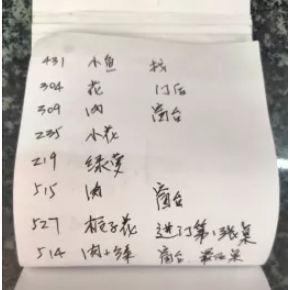 431 小鱼 找
304 花 门后
309 肉 窗台
235 小花
219 绿萝
515 肉 窗台
527 栀子花 进门第1张桌
514 肉+绿 窗台、最后桌